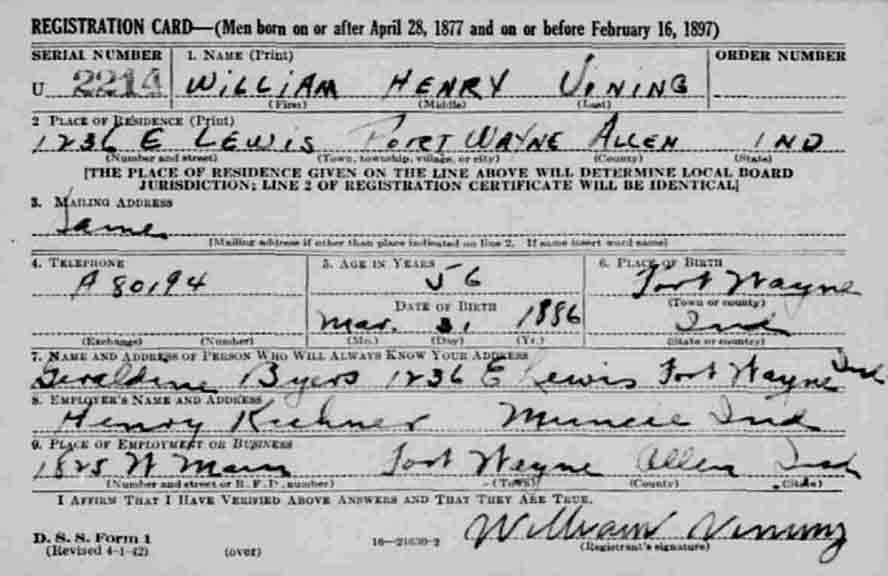 REGISTRATION CARD—(Men born on or after April 28, 1877 and on or before February 16, 1897)
SERIAL NUMBER 1. NAME (Print) ORDER NUMBER
U 2214 WILLIAM HENRY VINING
(First) (Middle) (Last)
2 PLACE OF RESIDENCE (Print)
1236 E LEWIS FORT WAYNE ALLEN IND
(Number and street) (Town, township, village, or city) (County) (State)
[THE PLACE OF RESIDENCE GIVEN ON THE LINE ABOVE WILL DETERMINE LOCAL BOARD
JURISDICTION; LINE 2 OF REGISTRATION CERTIFICATE WILL BE IDENTICAL]
3. MAILING ADDRESS
Same
[Mailing address if other than place indicated on line 2. If same insert word same]
4. TELEPHONE 5. AGE IN YEARS 6. PLACE OF BIRTH
A 80194 56 Fort Wayne
DATE OF BIRTH (Town or county)
Mar. 31 1886 Ind
(Exchange) (Number) (Mo.) (Day) (Yr.) (State or country)
7. NAME AND ADDRESS OF PERSON WHO WILL ALWAYS KNOW YOUR ADDRESS
Geraldine Byers 1236 E Lewis Fort Wayne Ind
8. EMPLOYER'S NAME AND ADDRESS
Henry Muncie Ind
9. PLACE OF EMPLOYMENT OR BUSINESS
1825 W Main Fort Wayne Allen Ind
(Number and street or R. F. D. number) (Town) (County) (State)
I AFFIRM THAT I HAVE VERIFIED ABOVE ANSWERS AND THAT THEY ARE TRUE.
William Vining
D. S. S. Form 1
(Revised 4-1-42) (over) 16—21630-2 (Registrant's signature)